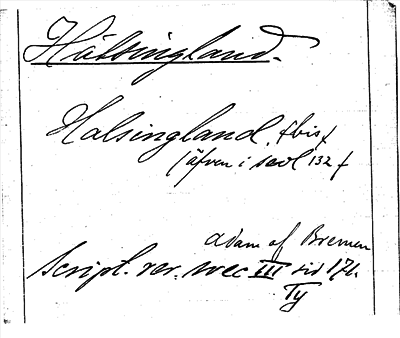 Hälsingland.
Halsingland. f bis f
(äfven i scol 132 f
adam af Bremen
Script. rer. svec III sid 176.
Ty